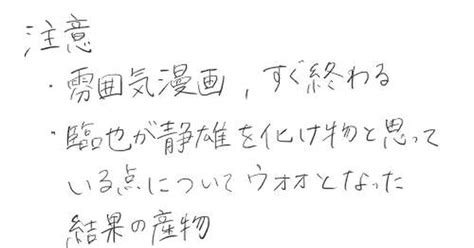 注意
・雰囲気漫画,すぐ終わる
・臨也が静雄を化け物と思って
いる点についてウオオとなった
結果の産物